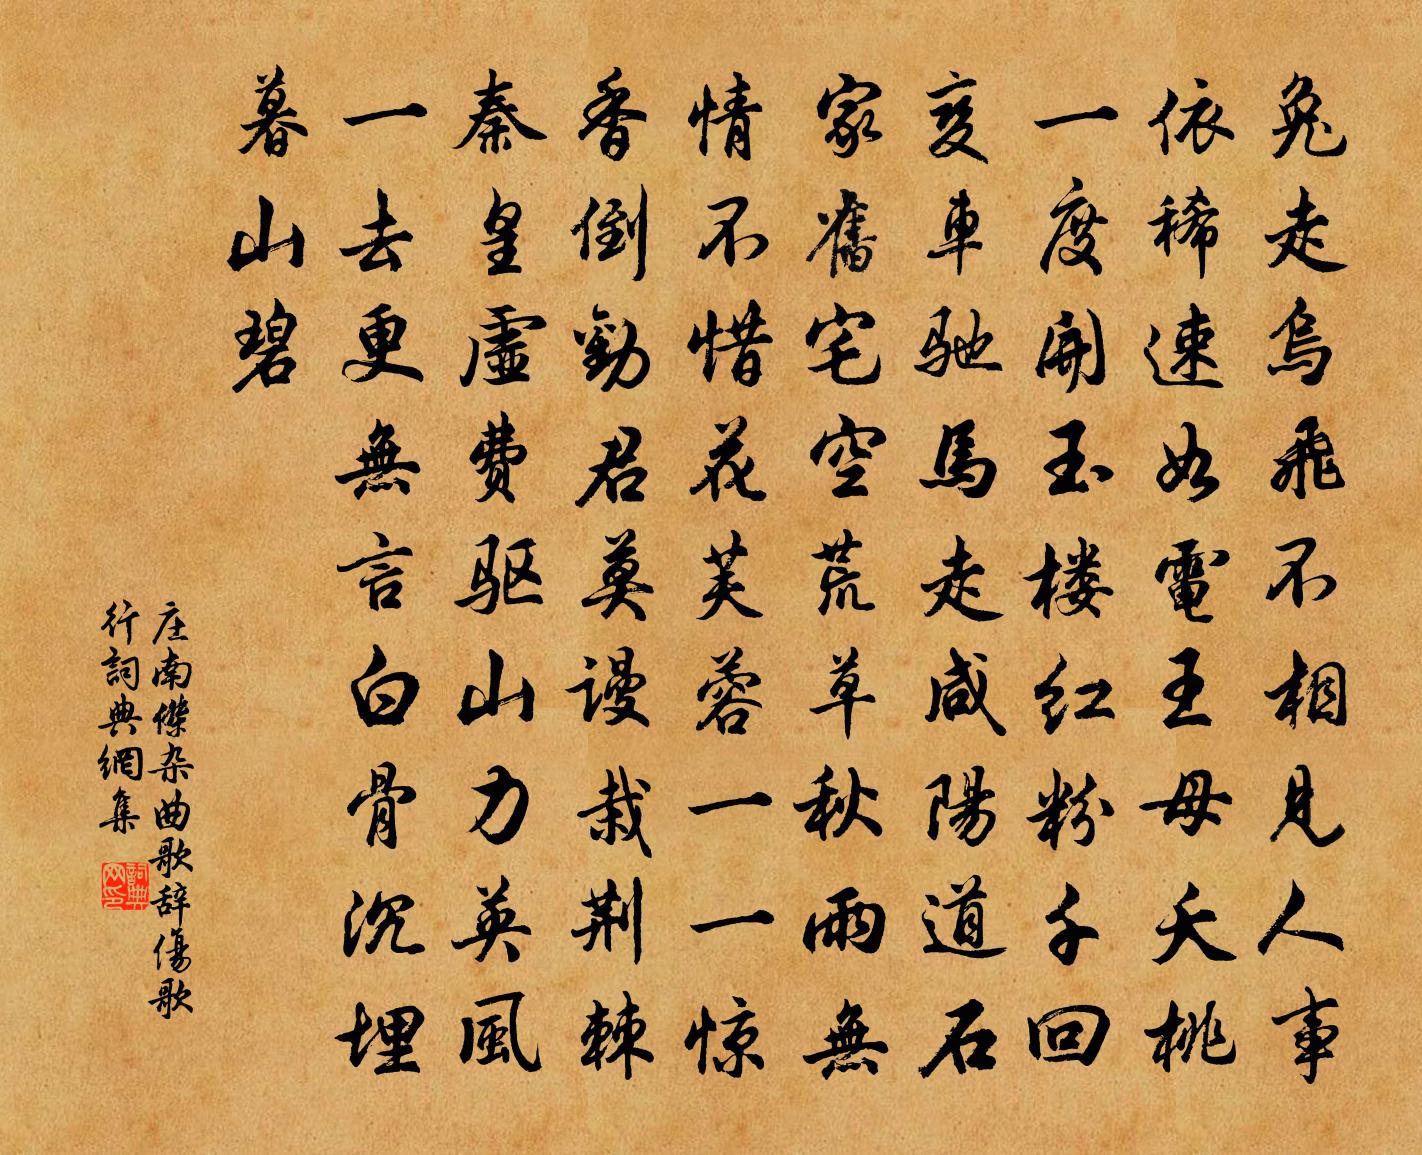 兔走烏飛不相見人事
依稀速如電王母夭桃
一度開玉楼红粉千回
变車馳馬走咸陽道石
家舊宅空荒草秋雨無
情不惜花芙蓉一一惊
香倒勸君莫谩栽荆棘
秦皇虛費驱山力英風
一去更無言白骨沉埋
暮山碧
庄南傑杂曲歌辞傷歌
行詞典網集
詞典
网印